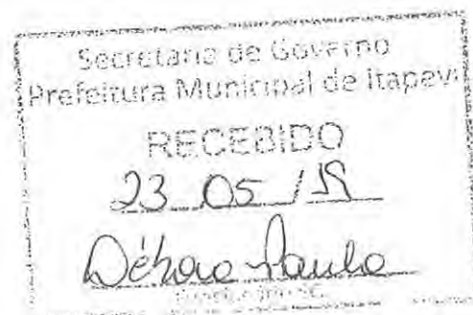 Secretaria de Governo
Prefeitura Municipal de Itapevi
RECEBIDO
23 05 / 19
Débora Paula